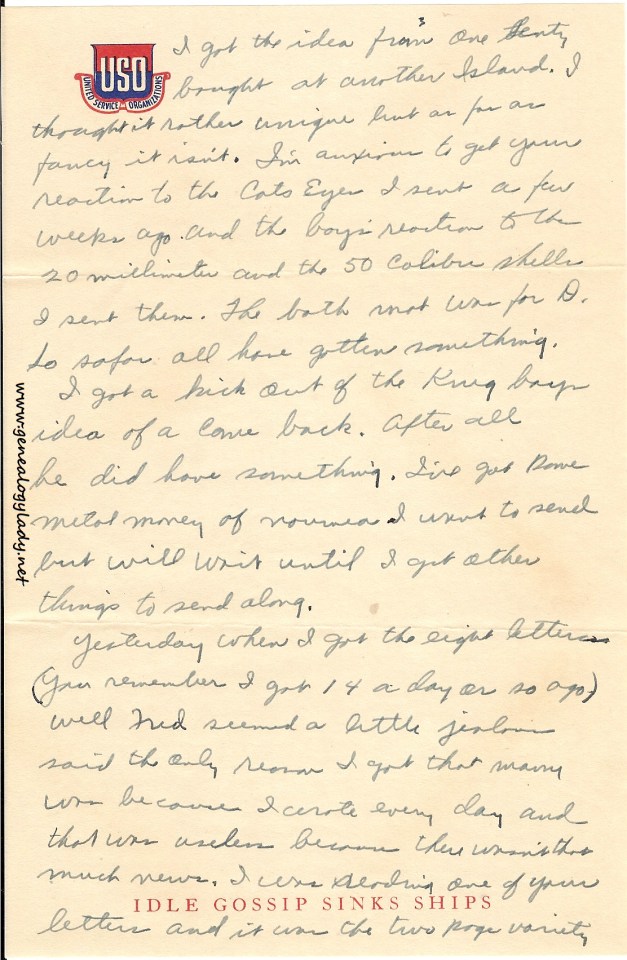 USO
UNITED SERVICE ORGANIZATIONS
I got the idea from one Benty
bought at another Island. I
thought it rather unique but as far as
fancy it isn't. I'm anxious to get your
reaction to the Cats Eyes I sent a few
weeks ago and the boys reaction to the
20 millimeter and the 50 Calibre shells
I sent them. The bath mat was for D.
So sofar all have gotten something.
I got a kick out of the Krug boys
idea of a Come back. After all
he did have something. I've got some
metal money of noumea I want to send
but will wait until I get other
things to send along.
Yesterday when I got the eight letters
(You remember I got 14 a day or so ago)
well Fred seemed a little jealous
said the only reason I got that many
was because I wrote every day and
that was useless because there wasn't that
much news. I was reading one of your
letters and it was the two page variety
IDLE GOSSIP SINKS SHIPS
www.genealogylady.net